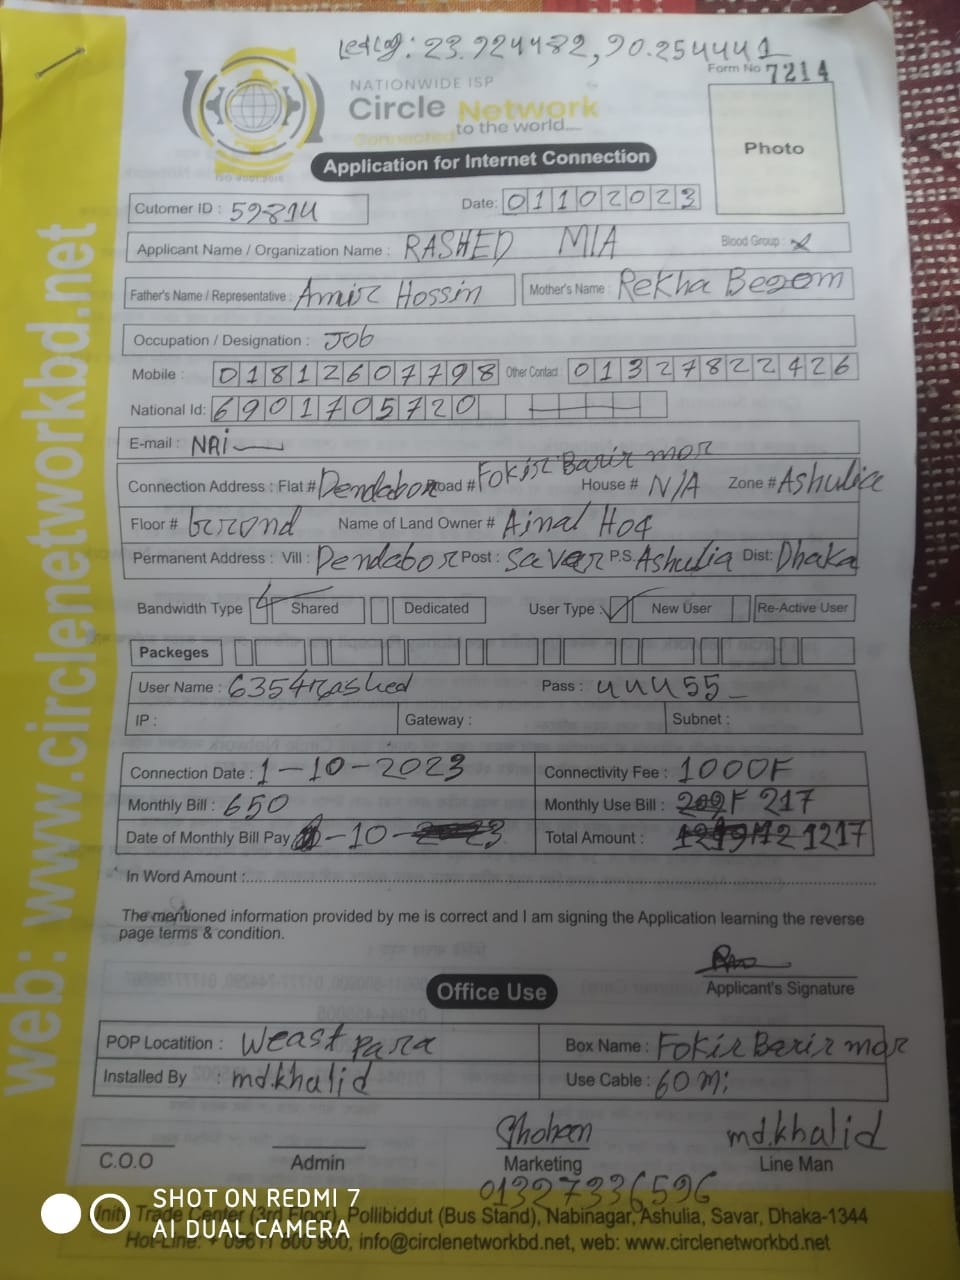 23.924482, 90.254441
Form No 7214
NATIONWIDE ISP
Circle Network
Connected to the world....
Photo
Application for Internet Connection
ISO 9001:2015
Cutomer ID : 59814
Date: 01102023
Applicant Name / Organization Name : RASHED MIA Blood Group :
Father's Name / Representative : Amir Hossin Mother's Name : Rekha Begom
Occupation / Designation : Job
Mobile : 01812607798 Other Contact : 01327822426
National Id: 6901705720
E-mail : NAi
Connection Address : Flat # Dendabor Road # Fokir Barir mor House # N/A Zone # Ashulia
Floor # Grond Name of Land Owner # Ainal Hoq
Permanent Address : Vill : Dendabor Post : Savar P.S. Ashulia Dist: Dhaka
Bandwidth Type Shared Dedicated User Type : New User Re-Active User
Packeges
User Name : 6354rashed Pass : uuu55
IP : Gateway : Subnet :
Connection Date : 1-10-2023 Connectivity Fee : 1000F
Monthly Bill : 650 Monthly Use Bill : 217
Date of Monthly Bill Pay -10- Total Amount : 1217
In Word Amount :
The mentioned information provided by me is correct and I am signing the Application learning the reverse
page terms & condition.
Applicant's Signature
Office Use
POP Locatition : Weast Para Box Name : Fokir Barir mor
Installed By : md.khalid Use Cable : 60 mi
Shoheen md.khalid
C.O.O Admin Marketing Line Man
01327336596
Trade Center (3rd Floor), Pollibiddut (Bus Stand), Nabinagar, Ashulia, Savar, Dhaka-1344
Hot-Line: + 09611 800 900, info@circlenetworkbd.net, web: www.circlenetworkbd.net
web: www.circlenetworkbd.net
SHOT ON REDMI 7
AI DUAL CAMERA